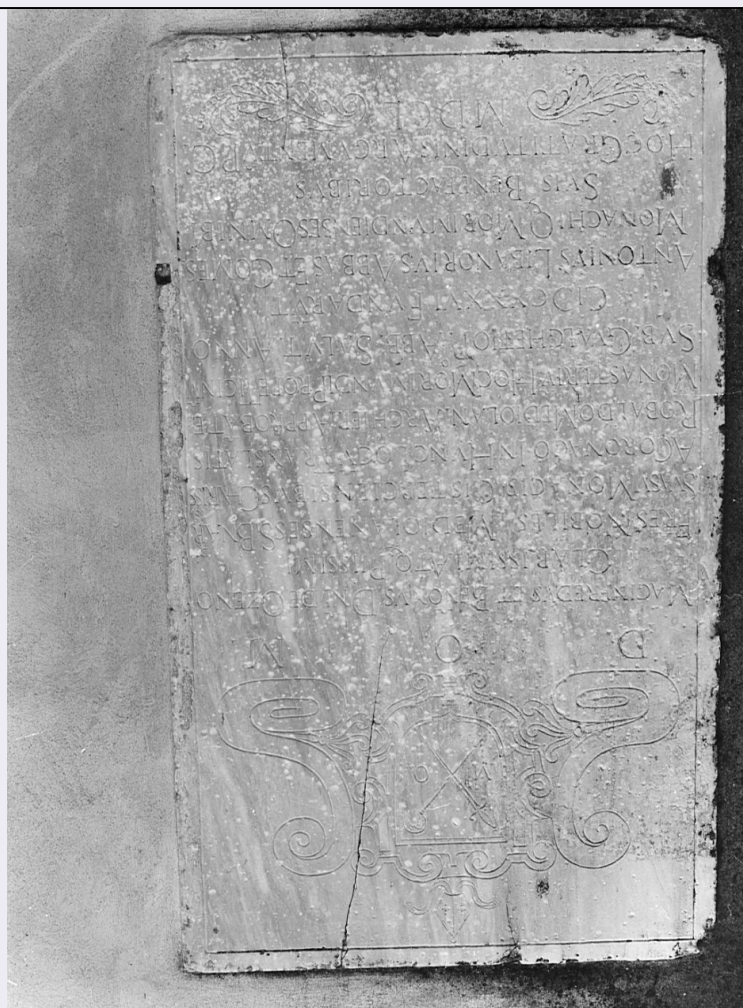 M O
D. O. M.
MAGINFREDVS ET BENONVS DNI DE OZENO
CLARISSIMI ATQ PIISSIMI
FRES NOBILES MEDIOLANENSES S BN
SVASV MONACIS CISTERCIENSIBVS CHARIS
A CORONAGO IN HVNC LOCV TRANSLATIS
ROBALDO MEDIOLANI ARCHIEP APPROBATE
MONASTERIV HOC MORIMVNDI PROPE TICINV
SVB GVALCHERIO P ABB SALVT ANNO
CIƆCXXXVI FVNDARVT
ANTONIVS LIBANORIVS ABBAS ET COMES
MONACHIQ MORIMVNDIENSES OMNIB
SVIS BENEFACTORIBVS
HOC GRATITVDINIS ARGVMENTV P. C.
MDCL